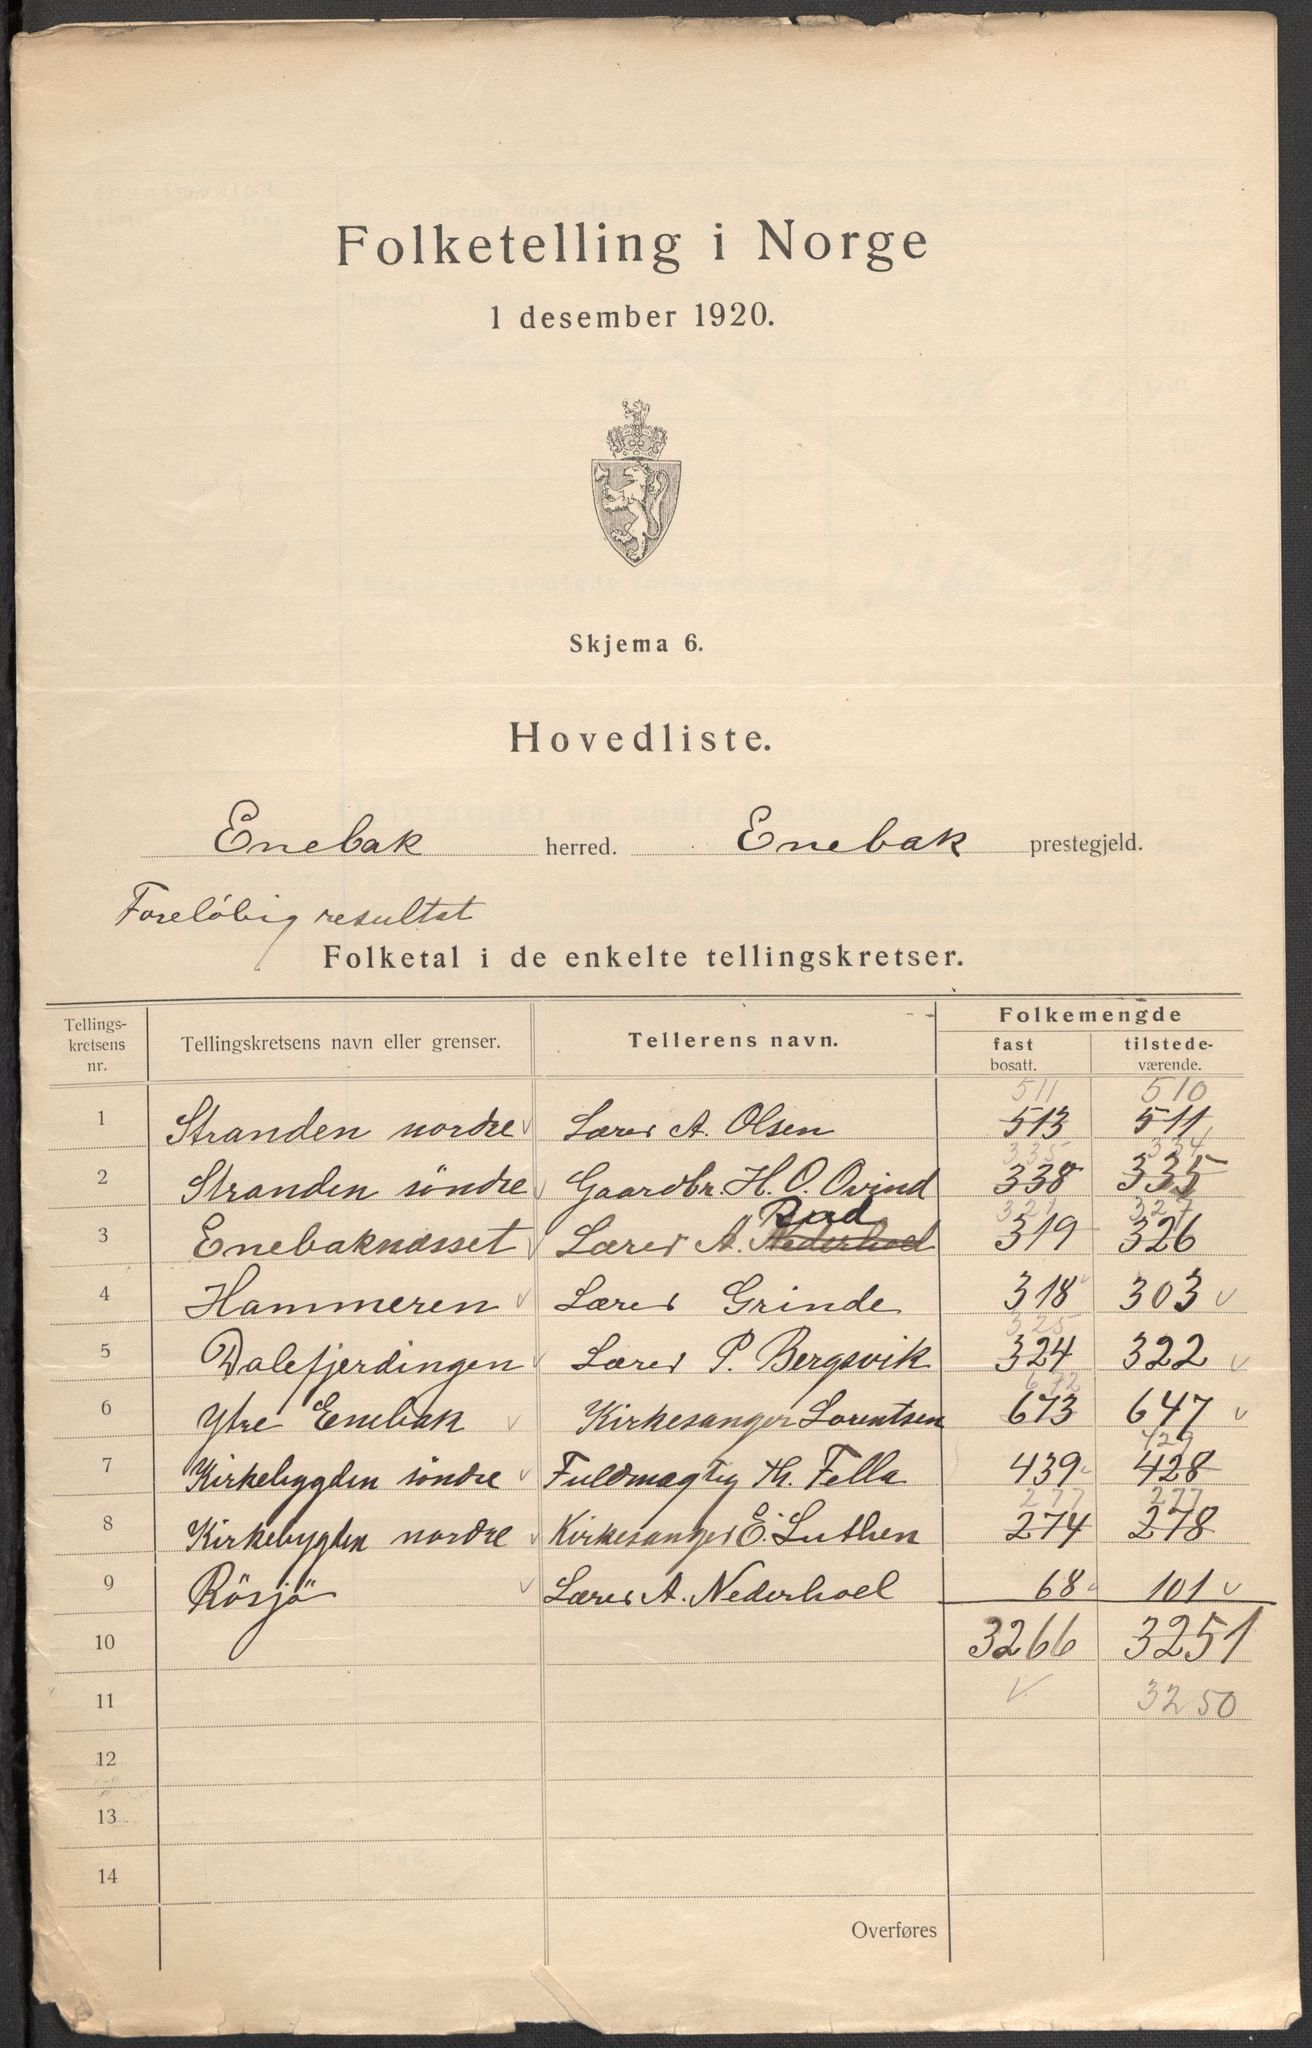 Folketelling i Norge
1 desember 1920.
Skjema 6.
Hovedliste.
Enebak herred. Enebak prestegjeld.
Foreløbig resultat
Folketal i de enkelte tellingskretser.
Tellings-
kretsens
nr.
Tellingskretsens navn eller grenser.
Tellerens navn.
Folkemengde
fast
bosatt.
tilstede-
værende.
511 510
1 Stranden nordre Lærer A. Olsen 513 511
335 334
2 Stranden söndre Gaardbr. H. O. Ovind 338 335
Rud 321 327
3 Enebaknæsset Lærer A. Nederhoel 319 326
4 Hammeren Lærer Grinde 318 303
325
5 Dalefjerdingen Lærer P. Bergsvik 324 322
672
6 Ytre Enebak Kirkesanger Lorentsen 673 647
429
7 Kirkebygden söndre Fuldmægtig Th. Fella 439 428
277 277
8 Kirkebygden nordre Kirkesanger E. Luthen 274 278
9 Rösjö Lærer A. Nederhoel 68 101
10 3266 3251
11 3250
12
13
14
Overføres